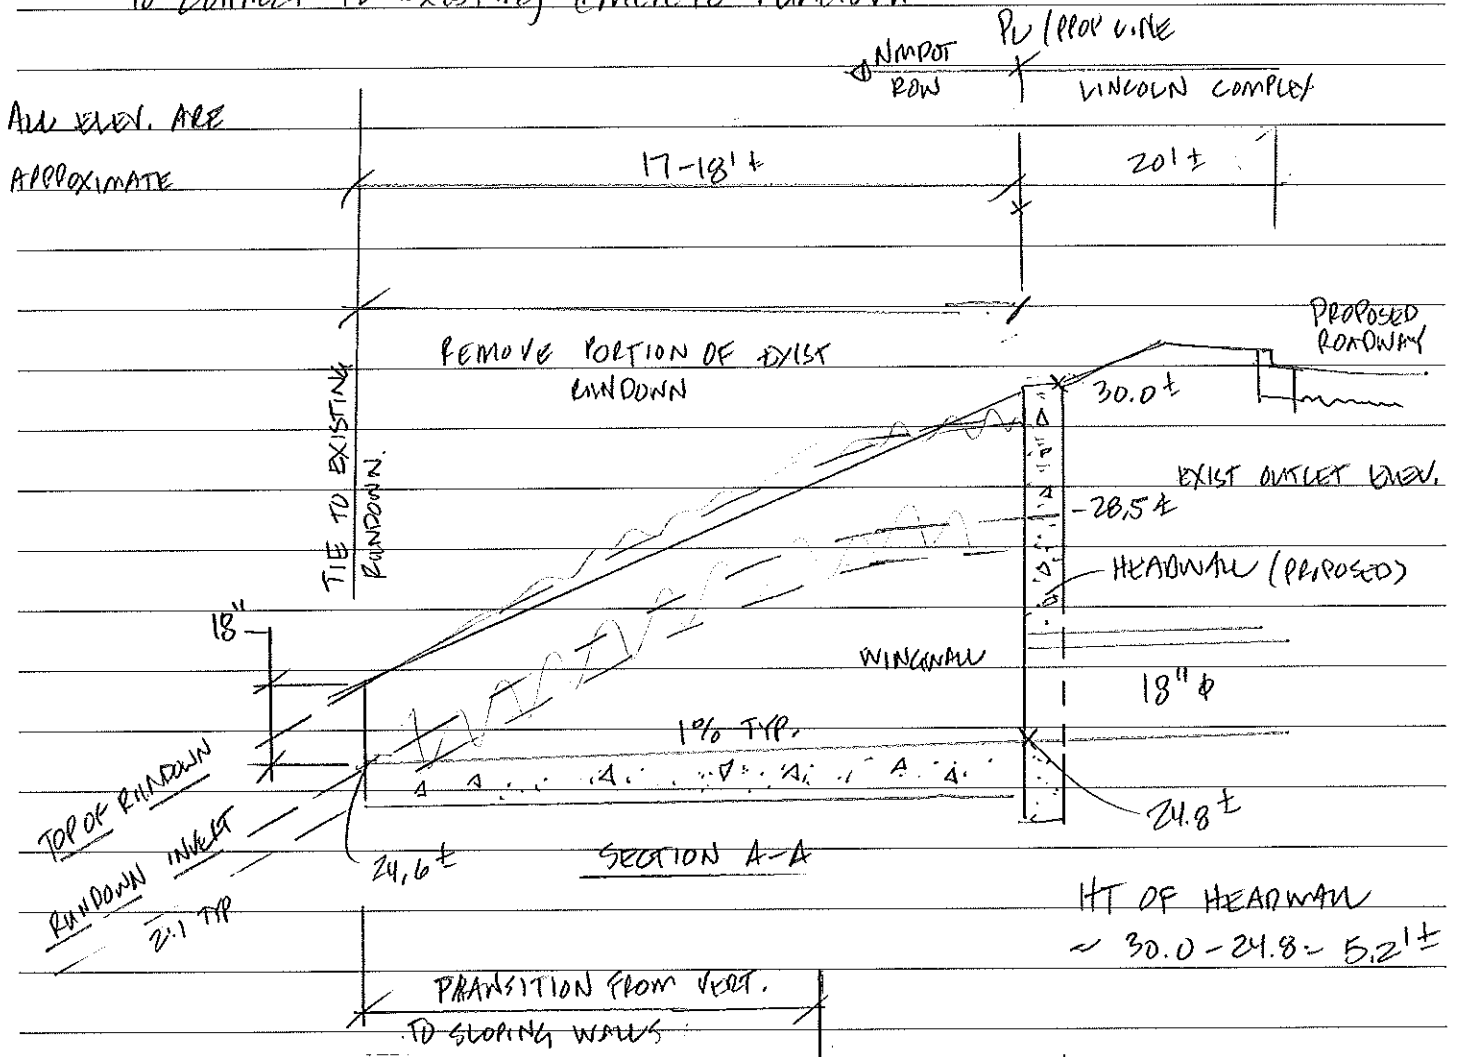 TO CONNECT TO EXISTING CONCRETE RUNDOWN
PL / PROP LINE
NMDOT
ROW
LINCOLN COMPLEX
ALL ELEV. ARE
APPROXIMATE
17-18' ±
20' ±
PROPOSED
ROADWAY
REMOVE PORTION OF EXIST
RUNDOWN
30.0 ±
TIE TO EXISTING
RUNDOWN.
EXIST OUTLET ELEV.
28.5 ±
HEADWALL (PROPOSED)
18"
WINGWALL
18" φ
1% TYP.
TOP OF RUNDOWN
RUNDOWN INVERT
2:1 TYP
24.6 ±
24.8 ±
SECTION A-A
HT OF HEADWALL
~ 30.0 - 24.8 = 5.2' ±
TRANSITION FROM VERT.
TO SLOPING WALLS